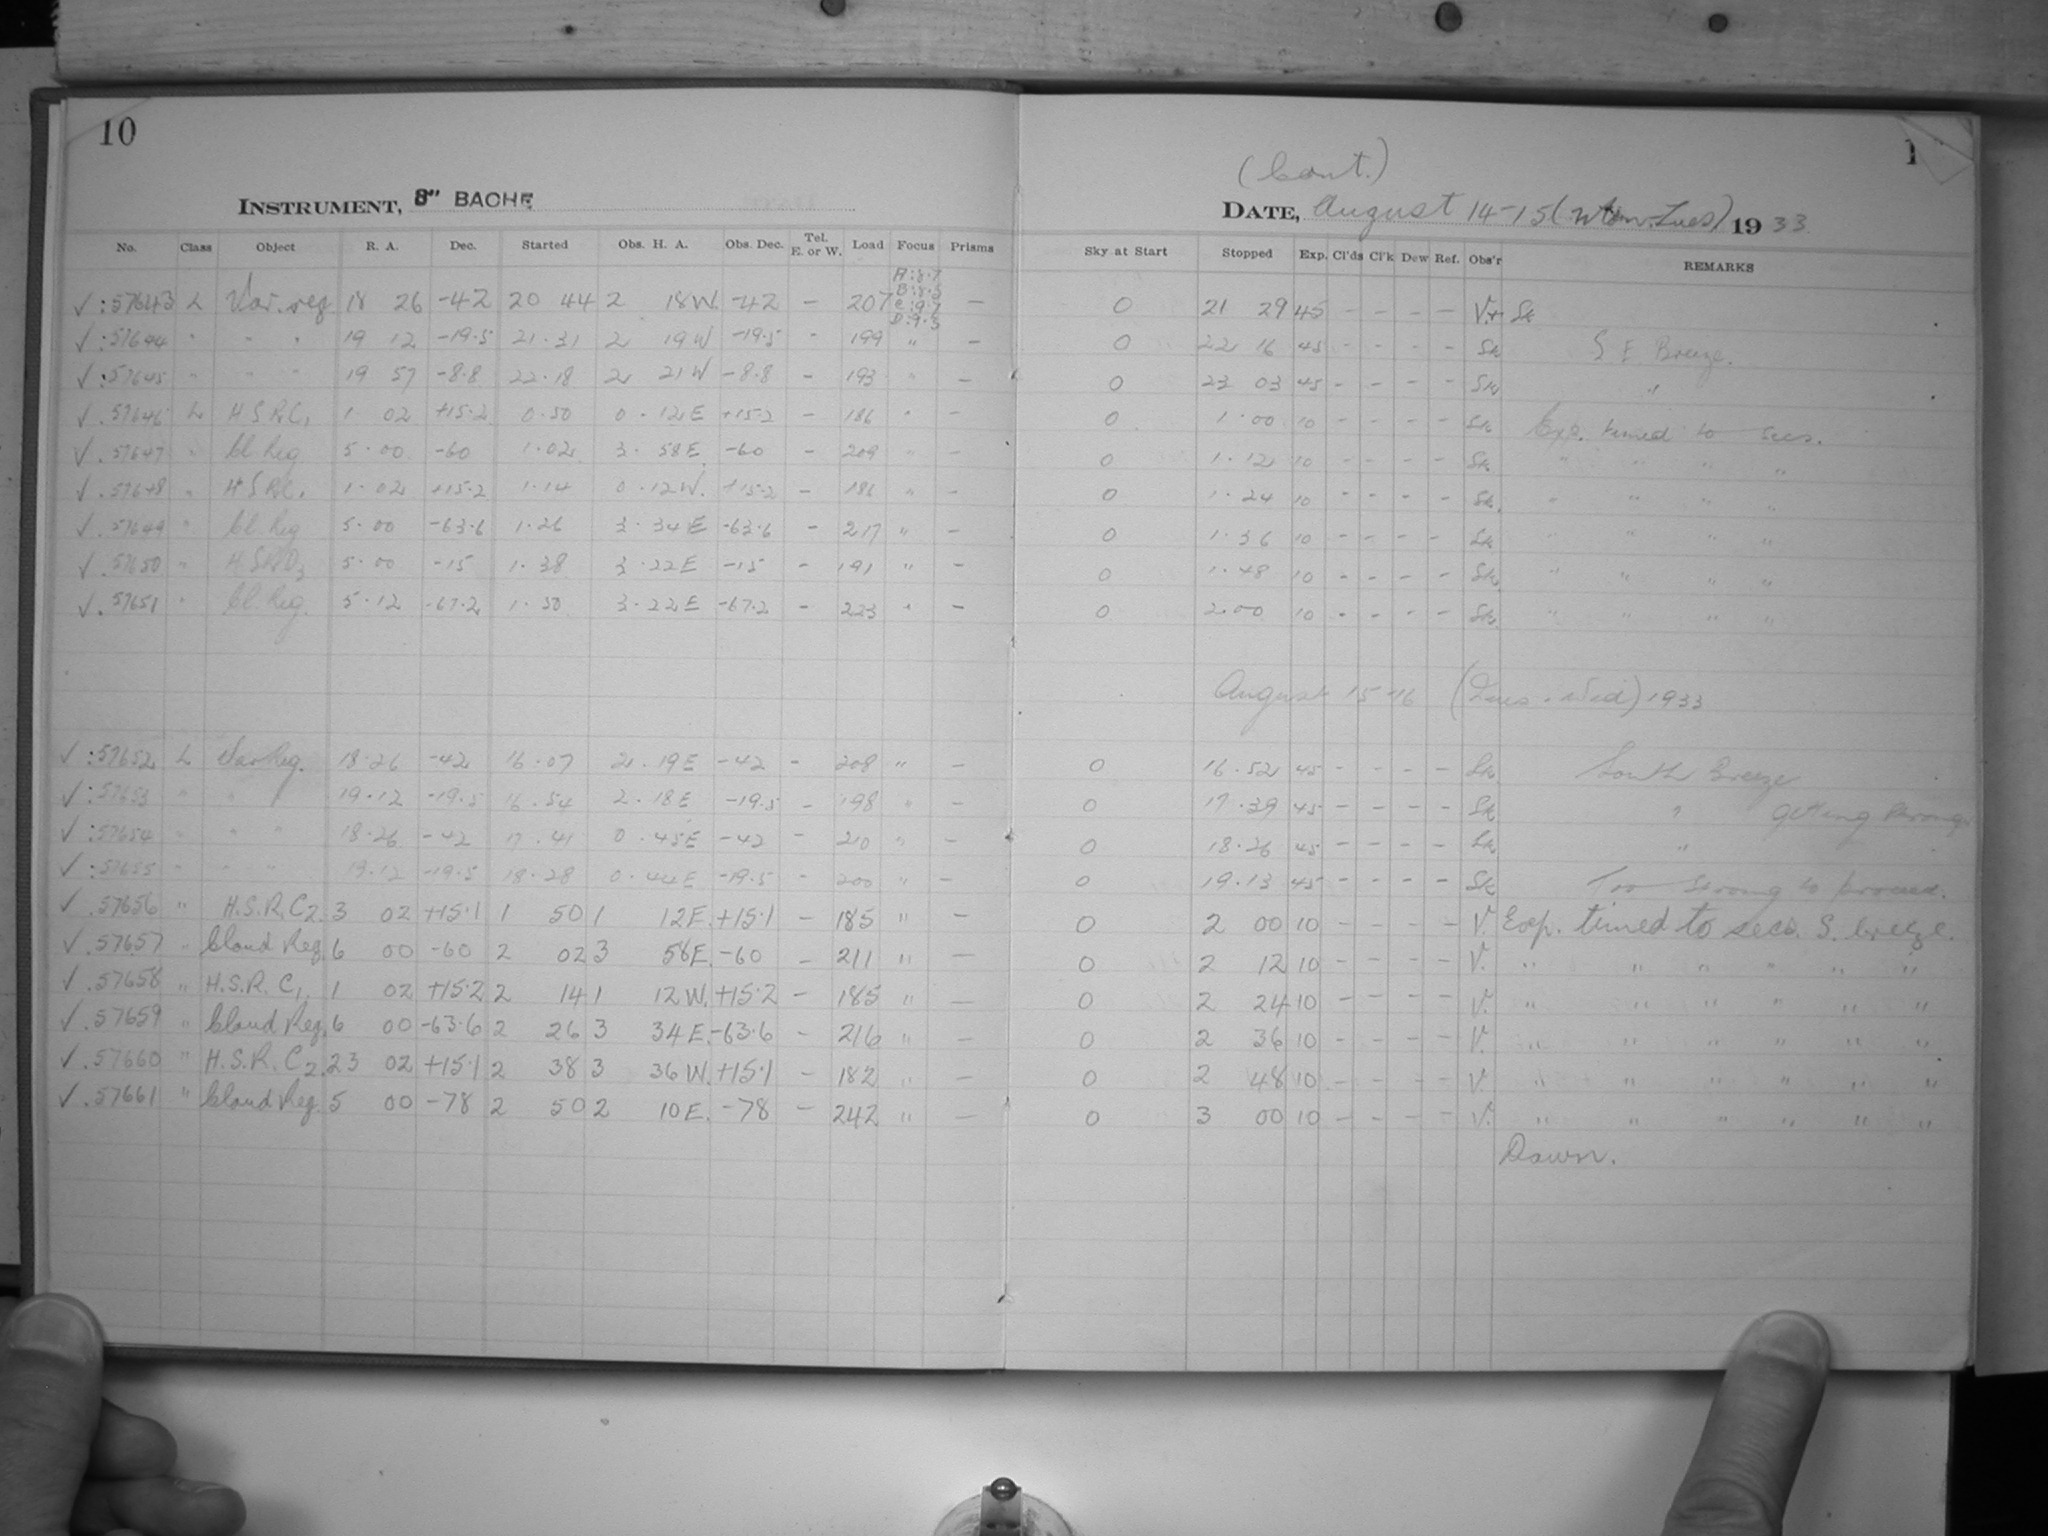 10
1
(Cont.)
INSTRUMENT, 8" BACHE
DATE, August 14-15 (Mon. Tues) 1933
No. Class Object R. A. Dec. Started Obs. H. A. Obs. Dec. Tel. E. or W. Load Focus Prisms Sky at Start Stopped Exp. Cl'ds Cl'k Dew Ref. Obs'r REMARKS
A:8.7
B:8.5
C:9.7
D:9.3
✓ :57643 L Var. reg 18 26 -42 20 44 2 18W. -42 - 207 - 0 21 29 45 - - - - V.+ Sk
✓ :57644 " " " 19 12 -19.5 21.31 2 19W -19.5 - 199 " - 0 22 16 45 - - - - Sk S E Breeze.
✓ :57645 " " " 19 57 -8.8 22.18 2 21W -8.8 - 193 " - 0 23 03 45 - - - - Sk "
✓ .57646 L H S R C1 1 02 +15.2 0.50 0.12E +15.2 - 186 " - 0 1.00 10 - - - - Sk Exp. timed to secs.
✓ .57647 " Cl. Reg 5.00 -60 1.02 3.58E -60 - 209 " - 0 1.12 10 - - - - Sk " " " "
✓ .57648 " H S R C1 1.02 +15.2 1.14 0.12W. +15.2 - 186 " - 0 1.24 10 - - - - Sk " " " "
✓ .57649 " Cl. Reg 5.00 -63.6 1.26 3.34E -63.6 - 217 " - 0 1.36 10 - - - - Sk " " " "
✓ .57650 " H S R D3 5.00 -15 1.38 3.22E -15 - 191 " - 0 1.48 10 - - - - Sk " " " "
✓ .57651 " Cl. Reg. 5.12 -67.2 1.50 3.22E -67.2 - 223 " - 0 2.00 10 - - - - Sk " " " "
August 15-16 (Tues. Wed) 1933
✓ :57652 L Var Reg. 18.26 -42 16.07 2.19E -42 - 208 " - 0 16.52 45 - - - - Sk South Breeze
✓ :57653 " " " 19.12 -19.5 16.54 2.18E -19.5 - 198 " - 0 17.39 45 - - - - Sk " getting strong
✓ :57654 " " " 18.26 -42 17.41 0.45E -42 - 210 " - 0 18.26 45 - - - - Sk "
✓ :57655 " " " 19.12 -19.5 18.28 0.44E -19.5 - 200 " - 0 19.13 45 - - - - Sk Too strong to proceed.
✓ .57656 " H.S.R. C2 3 02 +15.1 1 50 1 12E. +15.1 - 185 " - 0 2 00 10 - - - - V. Exp. timed to secs. S. breeze.
✓ .57657 " Cloud Reg. 6 00 -60 2 02 3 58E. -60 - 211 " - 0 2 12 10 - - - - V. " " " " " "
✓ .57658 " H.S.R. C1. 1 02 +15.2 2 14 1 12W. +15.2 - 185 " - 0 2 24 10 - - - - V. " " " " " "
✓ .57659 " Cloud Reg. 6 00 -63.6 2 26 3 34E. -63.6 - 216 " - 0 2 36 10 - - - - V. " " " " " "
✓ .57660 " H.S.R. C2. 23 02 +15.1 2 38 3 36W. +15.1 - 182 " - 0 2 48 10 - - - - V. " " " " " "
✓ .57661 " Cloud Reg. 5 00 -78 2 50 2 10E. -78 - 242 " - 0 3 00 10 - - - - V. " " " " " "
Dawn.